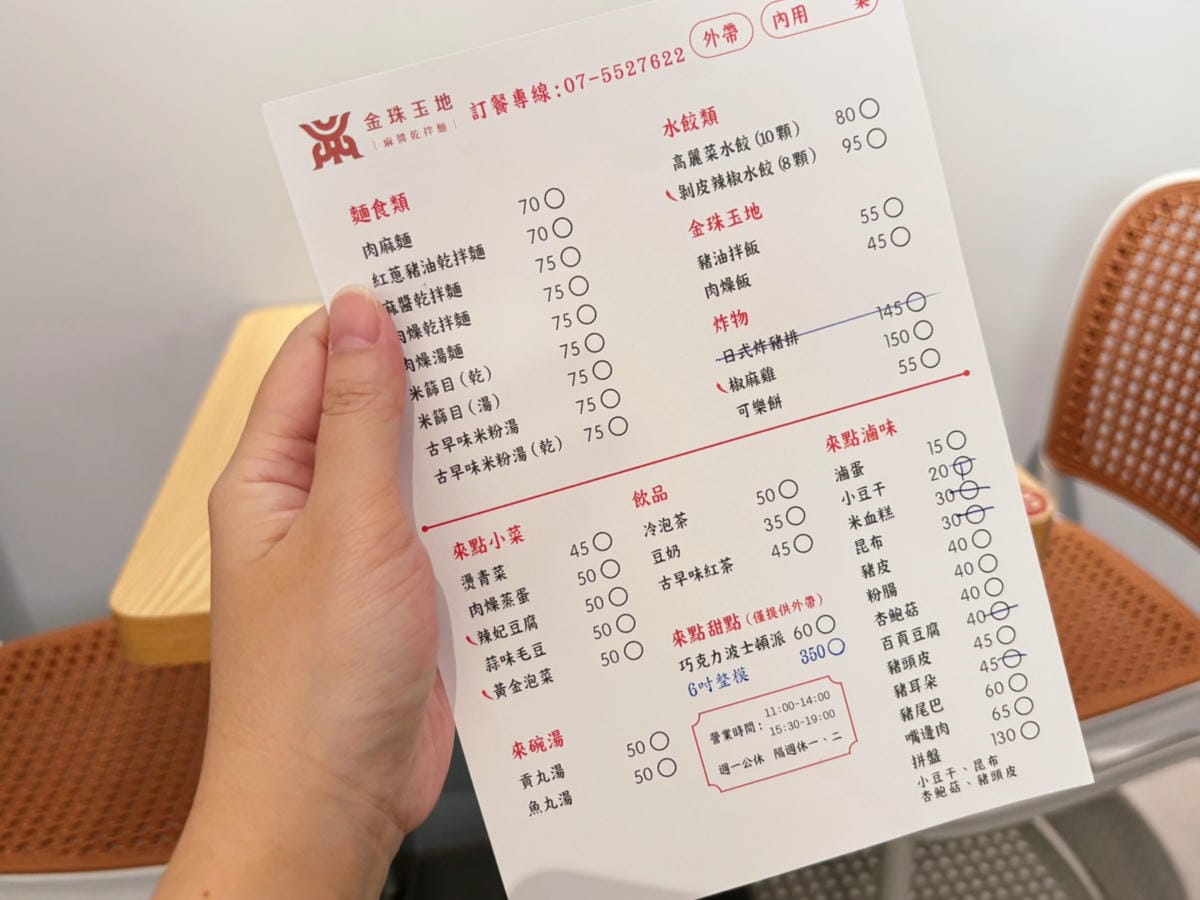 金珠玉地
麻醬乾拌麵
訂餐專線:07-5527622
外帶
內用
麵食類
肉麻麵 70
紅蔥豬油乾拌麵 70
麻醬乾拌麵 75
肉燥乾拌麵 75
肉燥湯麵 75
米篩目(乾) 75
米篩目(湯) 75
古早味米粉湯 75
古早味米粉湯(乾) 75
水餃類
高麗菜水餃(10顆) 80
剝皮辣椒水餃(8顆) 95
金珠玉地
豬油拌飯 55
肉燥飯 45
炸物
日式炸豬排 145
椒麻雞 150
可樂餅 55
來點小菜
燙青菜 45
肉燥蒸蛋 50
辣妃豆腐 50
蒜味毛豆 50
黃金泡菜 50
來碗湯
貢丸湯 50
魚丸湯 50
飲品
冷泡茶 50
豆奶 35
古早味紅茶 45
來點甜點(僅提供外帶)
巧克力波士頓派 60
6吋整模 350
營業時間:11:00-14:00
15:30-19:00
週一公休 隔週休一、二
來點滷味
滷蛋 15
小豆干 20
米血糕 30
昆布 30
豬皮 40
粉腸 40
杏鮑菇 40
百頁豆腐 40
豬頭皮 45
豬耳朵 45
豬尾巴 60
嘴邊肉 65
拼盤 130
小豆干、昆布
杏鮑菇、豬頭皮